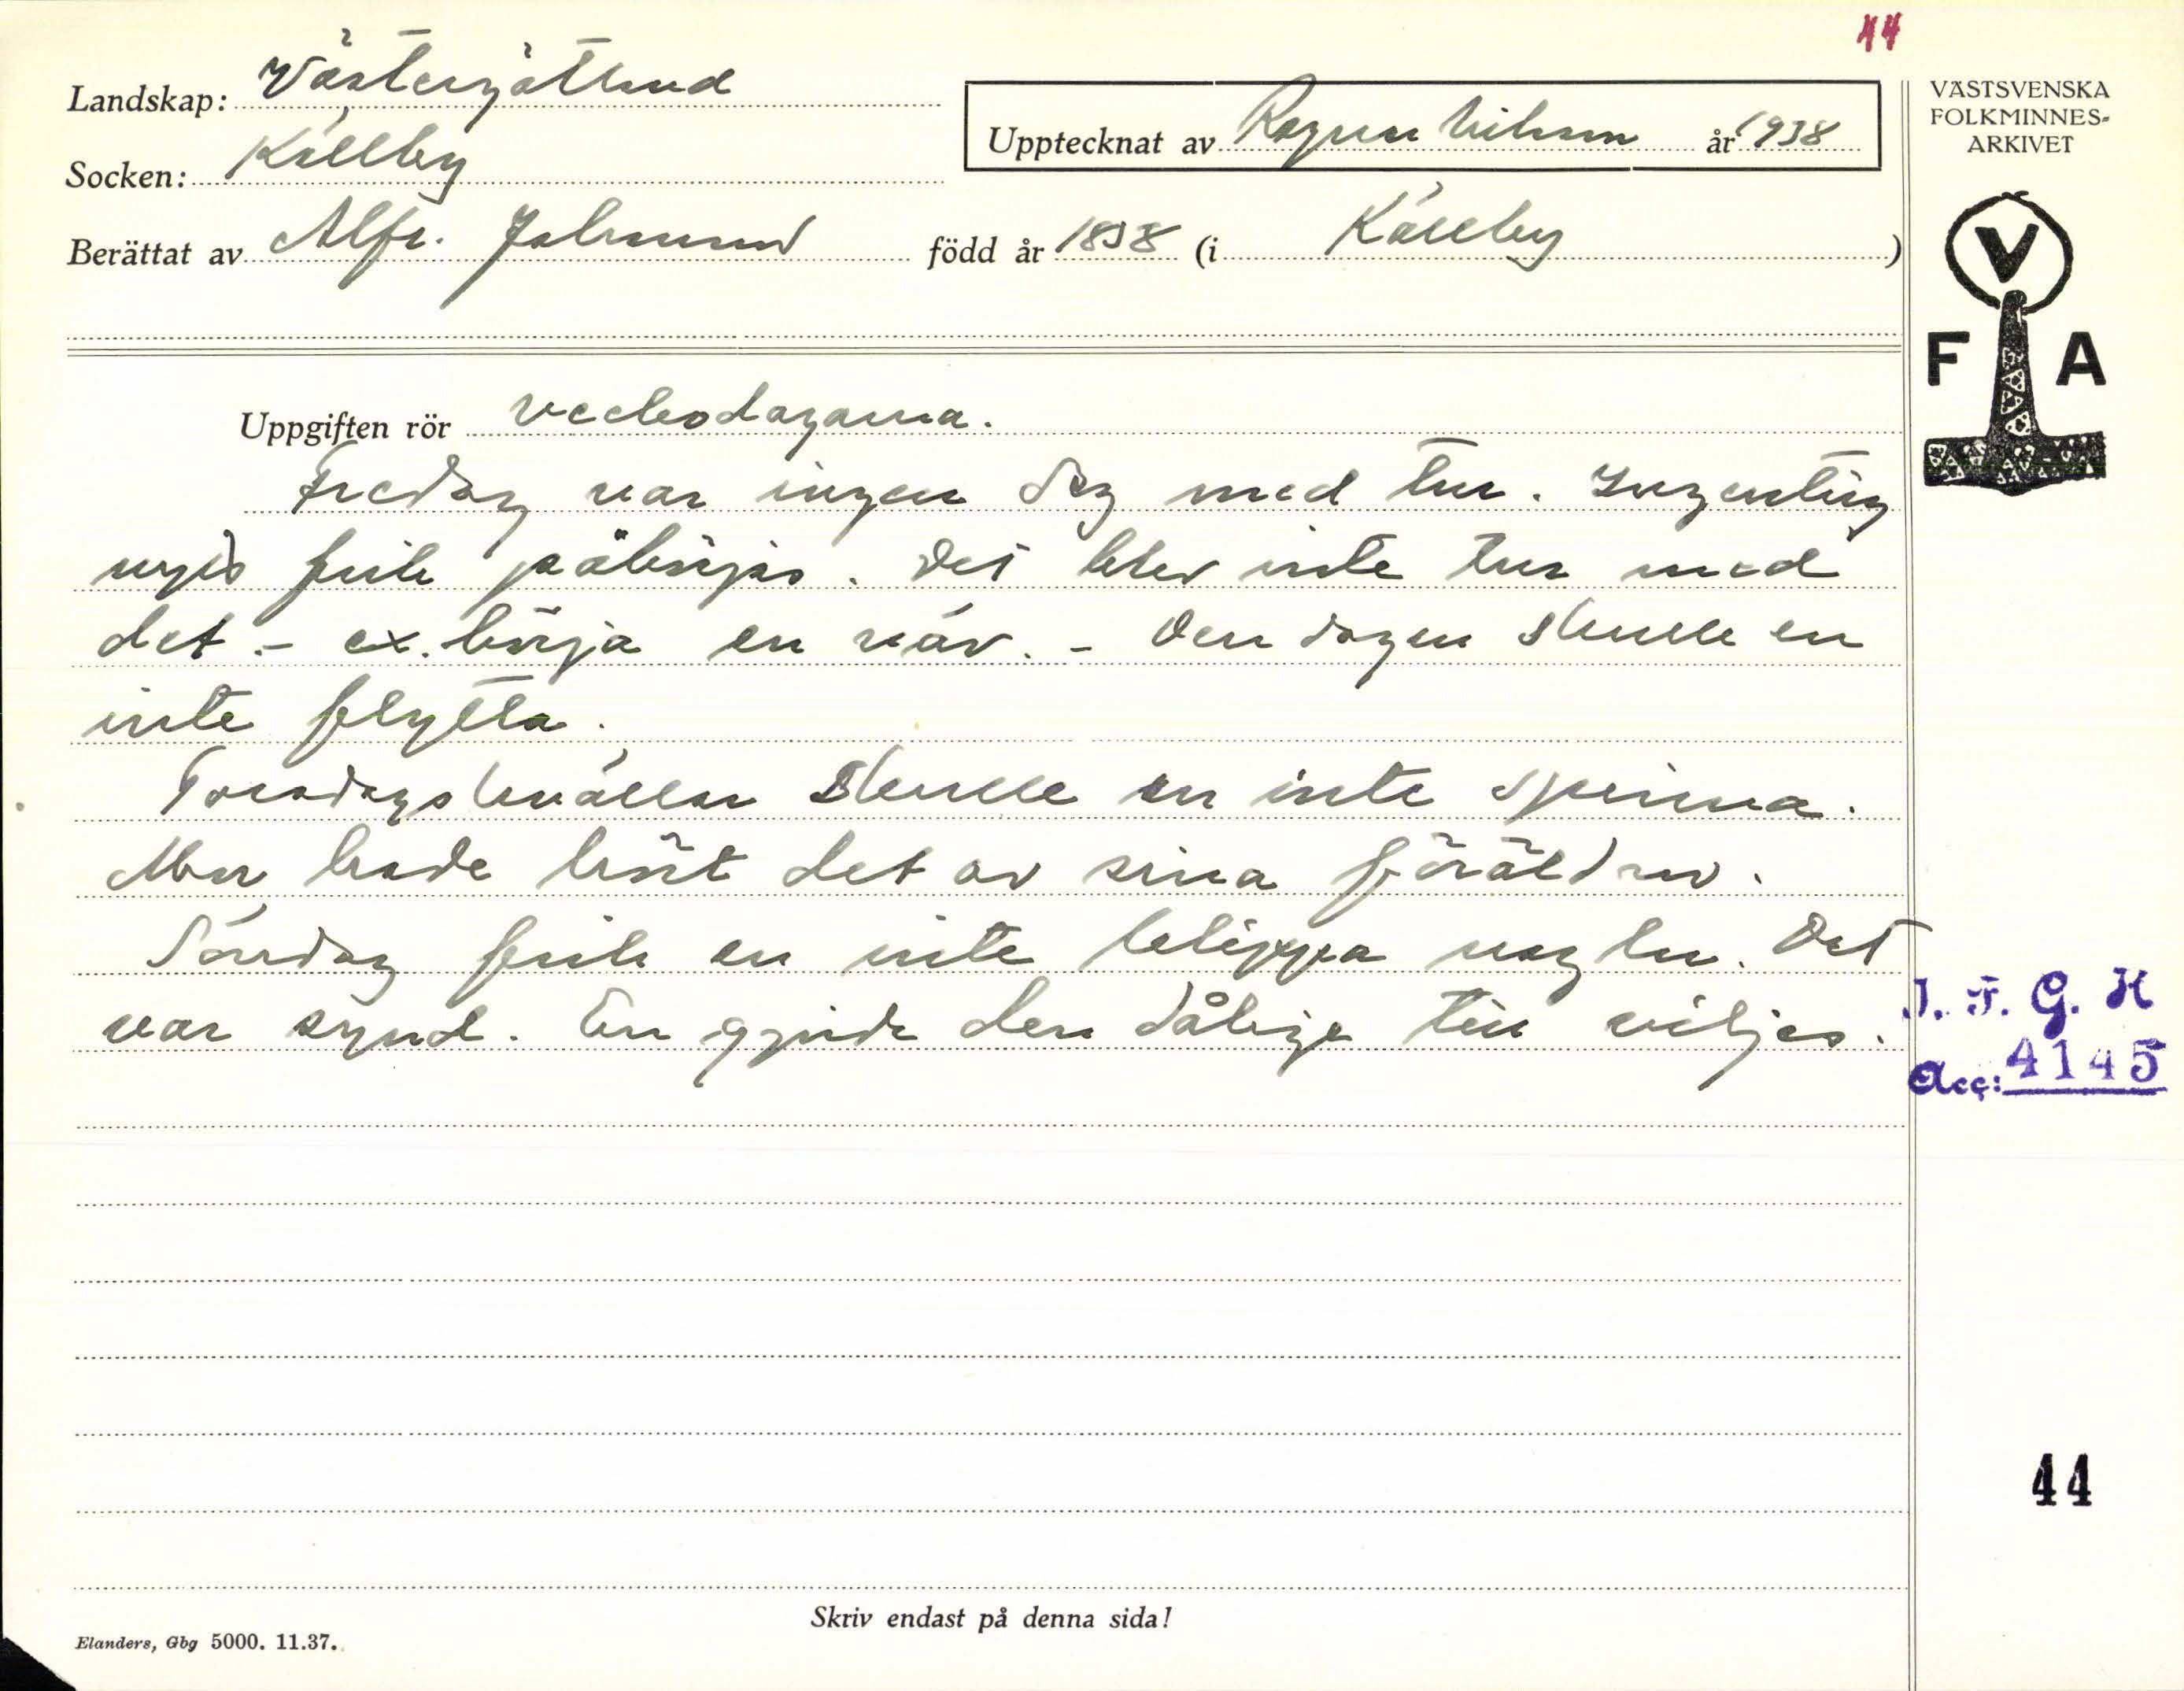 44
Landskap: Västergötland
Upptecknat av Ragnar Nilsson år 1938
VÄSTSVENSKA
FOLKMINNES-
ARKIVET
Socken: Källby
Berättat av Alfr. född år 1858 (i Källby)
V
F A
Uppgiften rör veckodagarna.
Fredag var ingen dag med tur. Ingenting
nytt fick påbörjas. Det blev inte tur med
det - ex. börja en väv. - Den dagen skulle en
inte flytta.
Torsdagskvällar skulle en inte spinna.
Man hade hört det av sina föräldrar.
Söndag fick en inte klippa naglar. Det
var synd. En gjorde den dålige till viljes.
I. F. G. H
Acc: 4145
44
Skriv endast på denna sida!
Elanders, Gbg 5000. 11.37.